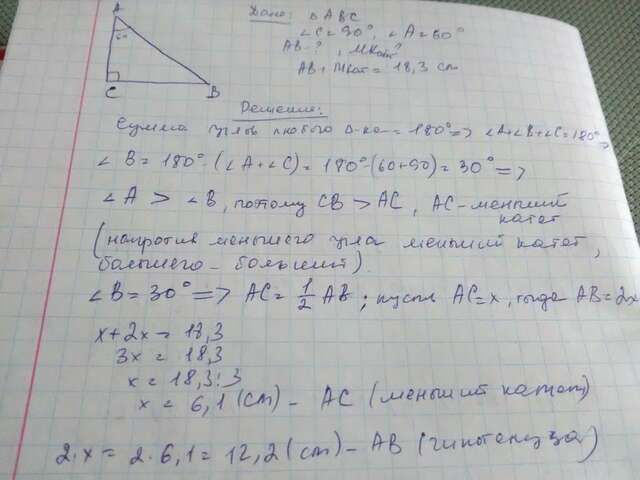 Дано: Δ ABC
∠C = 90°, ∠A = 60°
AB - ?, Мкат?
AB + Мкат = 18,3 cm
A
60°
C
B
Решение:
Сумма углов любого Δ-ка = 180° => ∠A+∠B+∠C=180° =>
∠B = 180° - (∠A+∠C) = 180° - (60+90) = 30° =>
∠A > ∠B, потому CB > AC, AC - меньший
катет
(напротив меньшего угла меньший катет,
большего - больший).
∠B = 30° => AC = 1/2 AB; пусть AC = x, тогда AB = 2x
x + 2x = 18,3
3x = 18,3
x = 18,3 : 3
x = 6,1 (cm) - AC (меньший катет)
2·x = 2·6,1 = 12,2 (cm) - AB (гипотенуза)